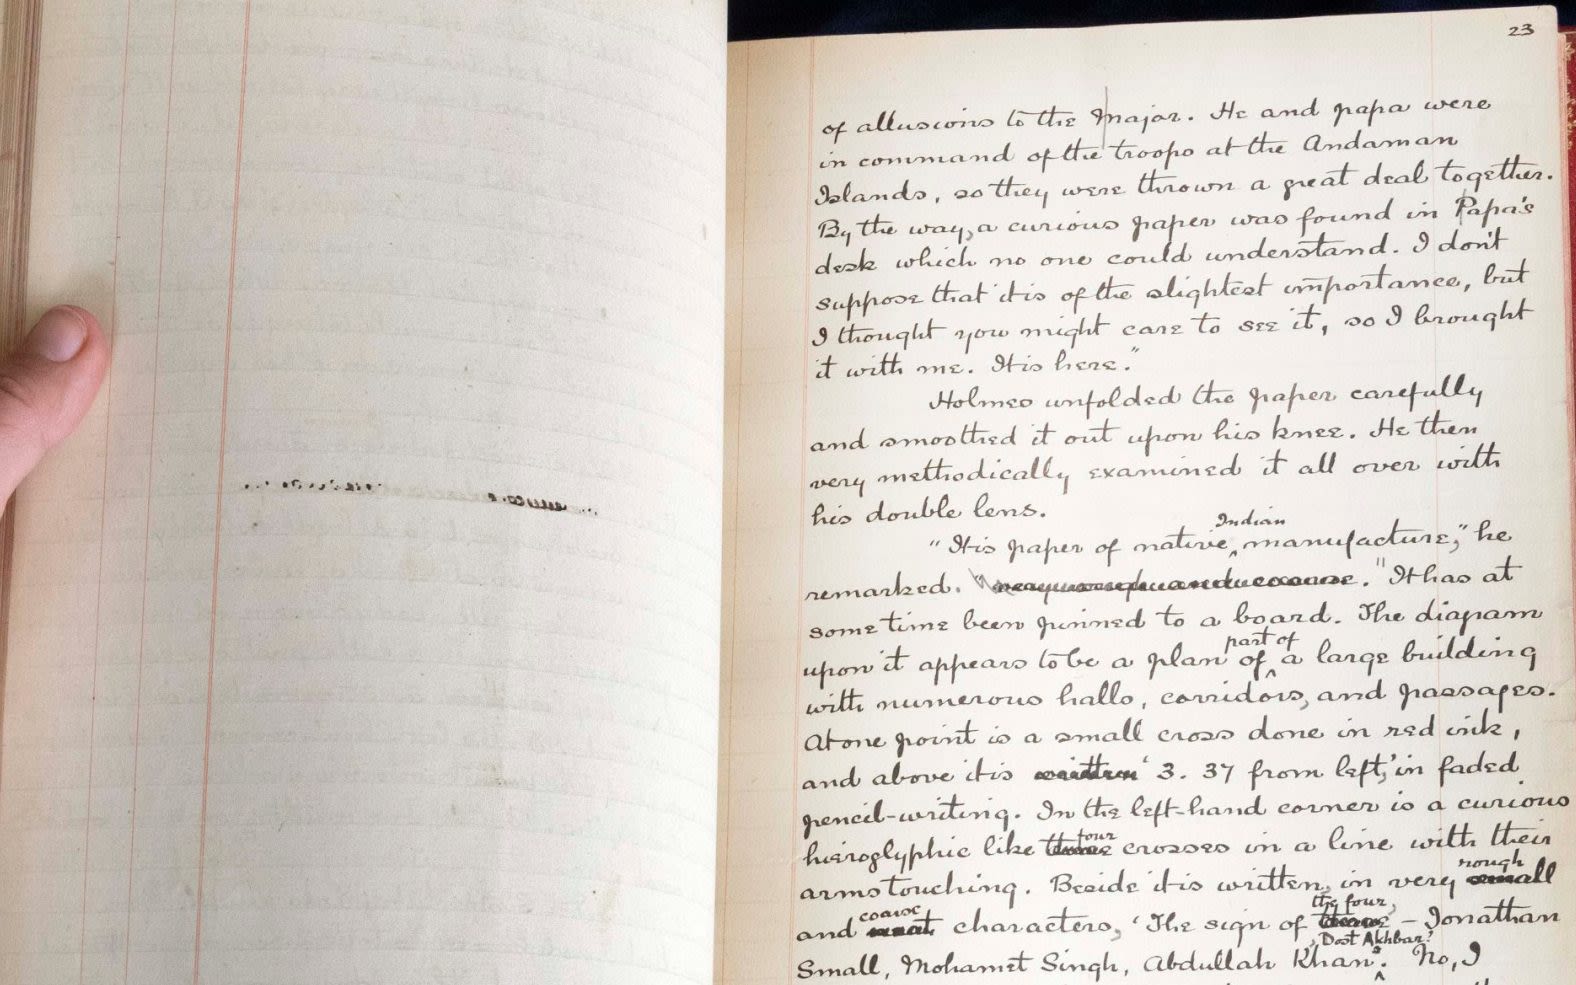 23
of allusions to the Major. He and papa were
in command of the troops at the Andaman
Islands, so they were thrown a great deal together.
By the way, a curious paper was found in Papa's
desk which no one could understand. I don't
suppose that it is of the slightest importance, but
I thought you might care to see it, so I brought
it with me. It is here."
Holmes unfolded the paper carefully
and smoothed it out upon his knee. He then
very methodically examined it all over with
his double lens.
Indian
"It is paper of native manufacture," he
remarked. "It has at
some time been pinned to a board. The diagram
part of
upon it appears to be a plan of a large building
with numerous halls, corridors, and passages.
At one point is a small cross done in red ink,
and above it is written '3. 37 from left,' in faded
pencil-writing. In the left-hand corner is a curious
four
hieroglyphic like three crosses in a line with their
rough
arms touching. Beside it is written, in very small
coarse the four,
and neat characters, 'The sign of three – Jonathan
, Dost Akhbar.'
Small, Mohamet Singh, Abdullah Khan'. No, I